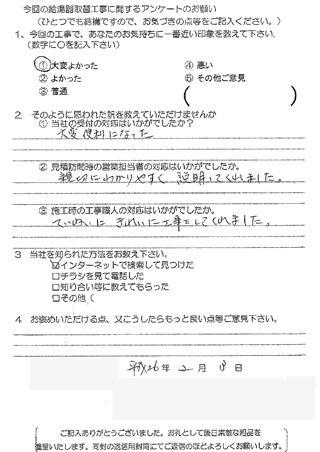 今回の給湯器取替工事に関するアンケートのお願い
(ひとつでも結構ですので、お気づきの点等をご記入ください。)
1、今回の工事で、あなたのお気持ちに一番近い印象を教えて下さい。
(数字に○を記入下さい)
① 大変よかった ④ 悪い
② よかった ⑤ その他ご意見
③ 普通 ( )
2. そのように思われた訳を教えていただけませんか
① 当社の受付の対応はいかがでしたか?
大変便利になった
② 見積訪問時の営業担当者の対応はいかがでしたか。
親切にわかりやすく説明してくれました。
③ 施工時の工事職人の対応はいかがでしたか。
ていねいにきれいに工事をしてくれました。
3 当社を知られた方法をお教え下さい。
☑インターネットで検索して見つけた
□チラシを見て電話した
□知り合い等に教えてもらった
□その他(
4 お褒めいただける点、又こうしたらもっと良い点等ご意見下さい。
平成26年 2月 日
ご記入ありがとうございました。お礼として後日素敵な粗品を
進呈いたします。同封の返信用封筒にてご返信のほどよろしくお願いします。